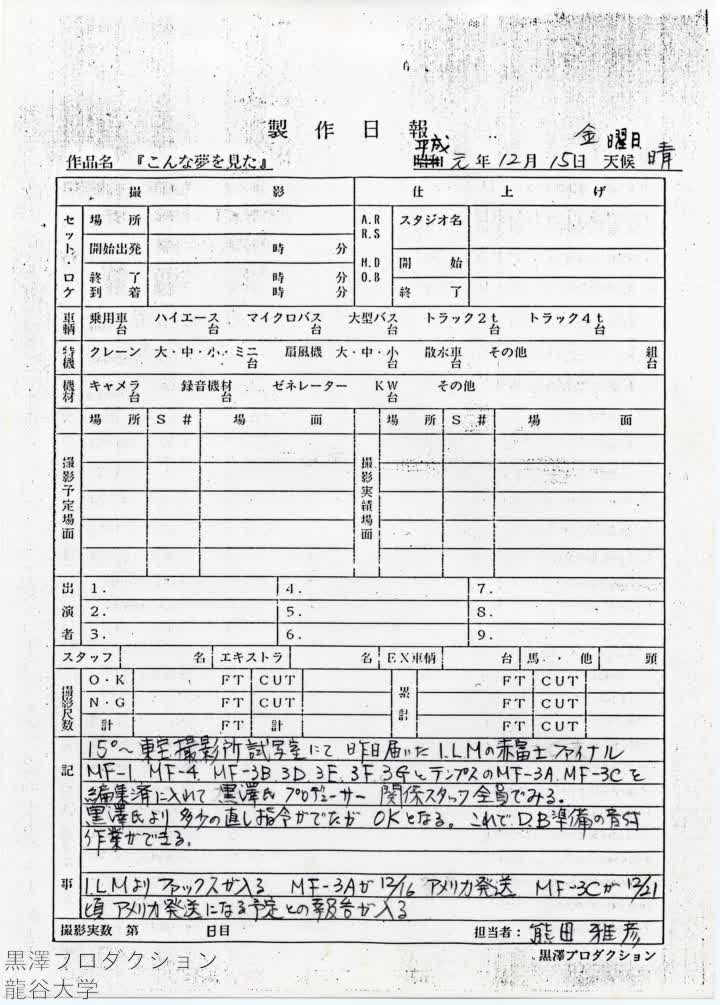 製作日報
作品名 『こんな夢を見た』 平成 元年12月15日 金曜日 天候 晴
撮影 仕上げ
セット・ロケ 場所 A.R R.S M.D O.B スタジオ名
開始出発 時 分 開始
終了 時 分 終了
到着 時 分
車輌 乗用車 台 ハイエース 台 マイクロバス 台 大型バス 台 トラック2t 台 トラック4t 台
特機 クレーン 大・中・小・ミニ 台 扇風機 大・中・小 台 散水車 台 その他 組 台
機材 キャメラ 台 録音機材 台 ゼネレーター KW 台 その他
場所 S# 場面 場所 S# 場面
撮影予定場面 撮影実績場面
出演者 1. 4. 7.
2. 5. 8.
3. 6. 9.
スタッフ 名 エキストラ 名 EX車輌 台 馬・他 頭
撮影尺数 O・K FT CUT 累計 FT CUT
N・G FT CUT FT CUT
計 FT 計 FT CUT
記事
15°〜東宝撮影所試写室にて、昨日届いたI.L.Mの赤富士ファイナル
MF-1、MF-4、MF-3B、3D、3E、3F、3GとテンプスのMF-3A、MF-3Cを
編集済に入れて 黒澤氏 プロデューサー 関係スタッフ全員でみる。
黒澤氏より 多少の直し指令がでたが OKとなる。これでD.B準備の音付
作業ができる。
I.L.Mよりファックスが入る MF-3Aが12/16 アメリカ発送 MF-3Cが12/21
頃アメリカ発送になる予定との報告が入る
撮影実数 第 日目 担当者: 熊田雅彦
黒澤プロダクション
黒澤プロダクション
龍谷大学